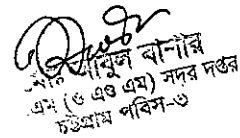 আবুল বাশার
এম (ও এণ্ড এম) সদর দপ্তর
চট্টগ্রাম পবিস-৩